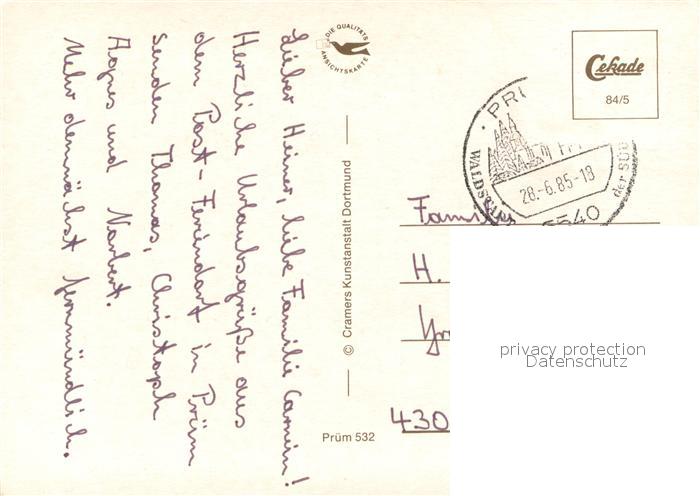 Lieber Heiner, liebe Familie Camin!
Herzliche Urlaubsgrüße aus
dem Post-Feriendorf in Prüm
senden Thomas, Christoph
Agnes und Norbert.
Mehr demnächst fernmündlich.
DIE QUALITÄTS
ANSICHTSKARTE
© Cramers Kunstanstalt Dortmund
Prüm 532
Cekade
84/5
PRÜ
WALDSTADT
der SÜD
28.-6.85-18
5540
Familie
H.
430
privacy protection
Datenschutz